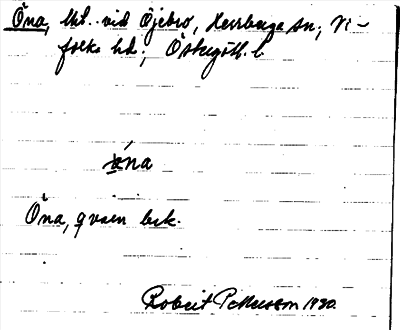 Öna, ut. vid Öjebro, Herrberga sn, Vi-
folka hd.; Östergötl. l.
óna
Öna, qvarn bek.
Robert Pettersson 1930.